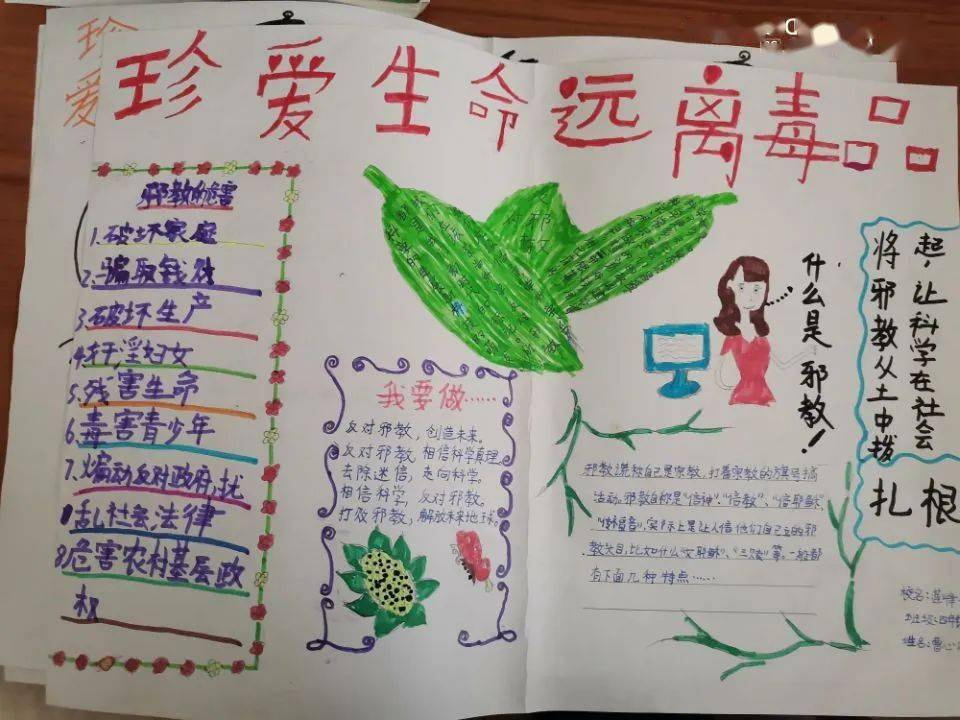 珍爱生命远离毒品
珍
爱
邪教的危害
1.破坏家庭
2.骗取钱财
3.破坏生产
4.奸淫妇女
5.残害生命
6.毒害青少年
7.煽动反对政府,扰
乱社会法律
8.危害农村基层政
权
邪
教
我要做……
反对邪教,创造未来。
反对邪教,相信科学真理
去除迷信,走向科学。
相信科学,反对邪教。
打败邪教,解放未来地球。
什么是邪教!
邪教说称自己是宗教,打着宗教的旗号搞
活动。邪教自称是“信神”、“信教”、“信耶稣”、
“传福音”,实际上是让人信他们自己立的邪
教头目,比如什么“女耶稣”、“三赎”等,一般都
有下面几种特点……
起,让科学在社会
将邪教从土中拨
扎根
校名:莲峰
班级:四年
姓名:曹心